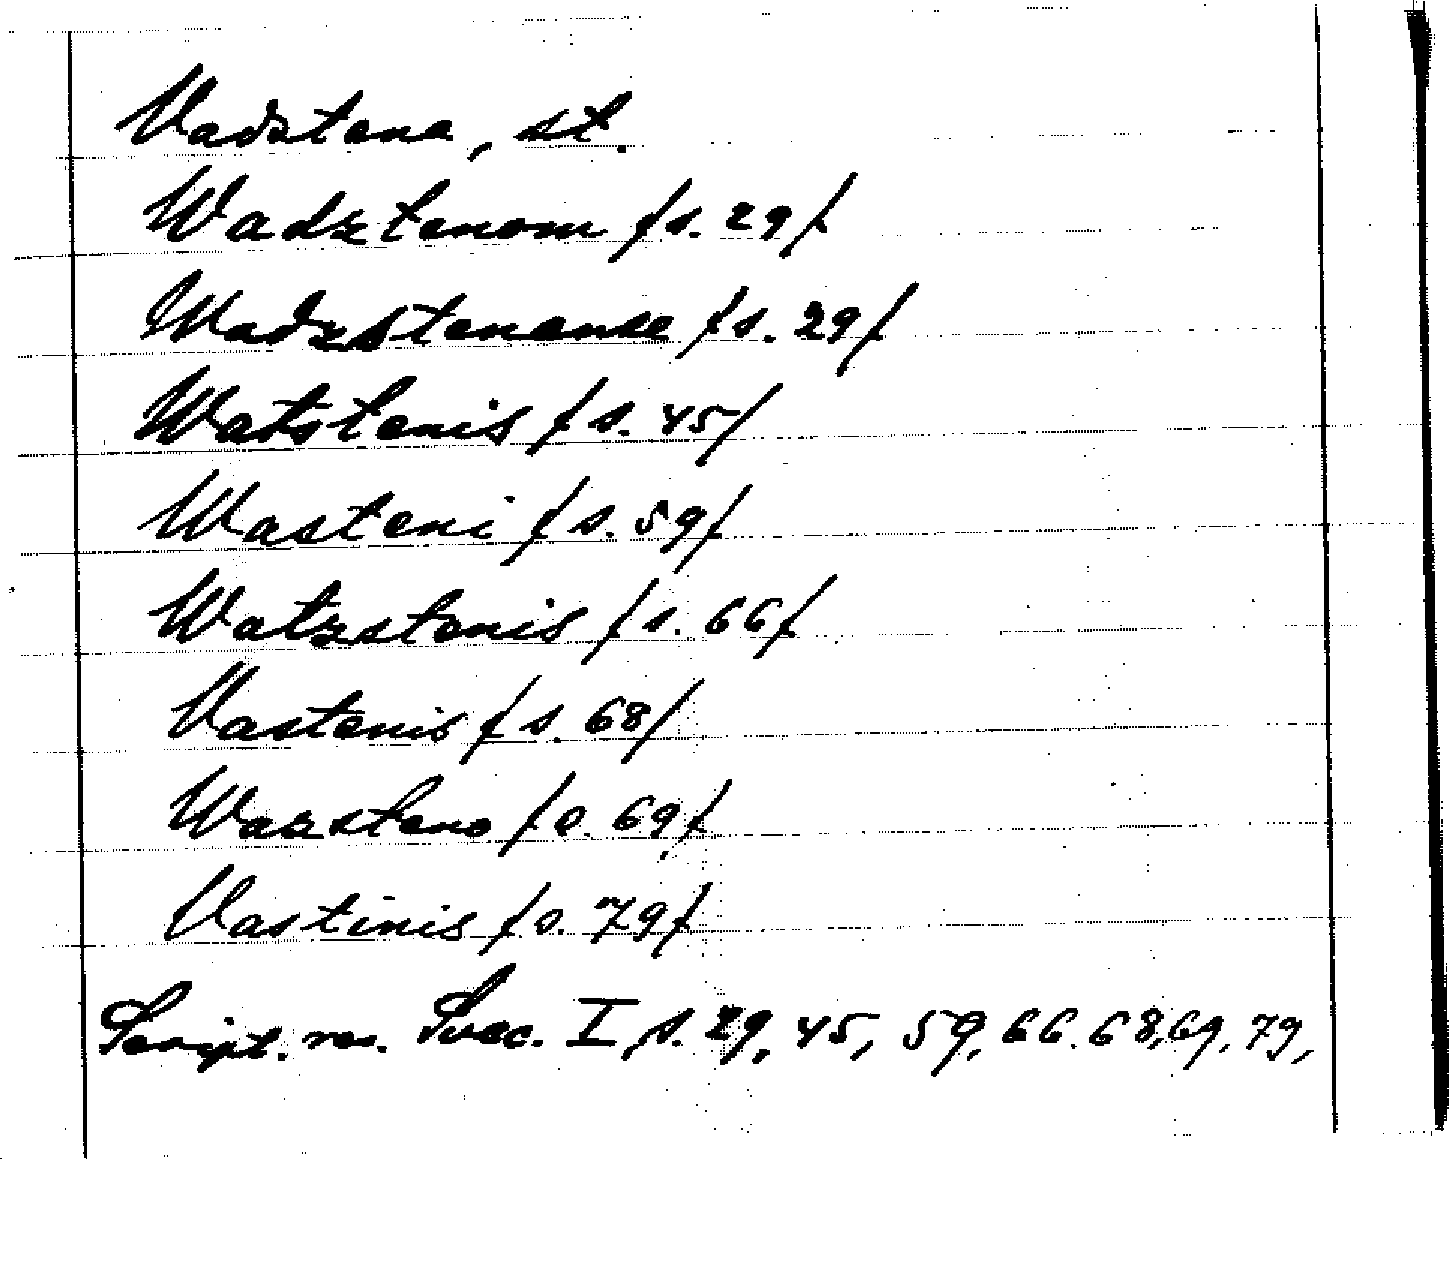 Vadstena, st.
Wadztenom /s. 29/
Wadzstenense /s. 29/
Watstenis /s. 45/
Wasteni /s. 59/
Watzstenis /s. 66/
Vastenis /s. 68/
Wazsteno /s. 69/
Vastinis /s. 79/
Script. rer. Svec. I, s. 29, 45, 59, 66. 68, 69, 79,